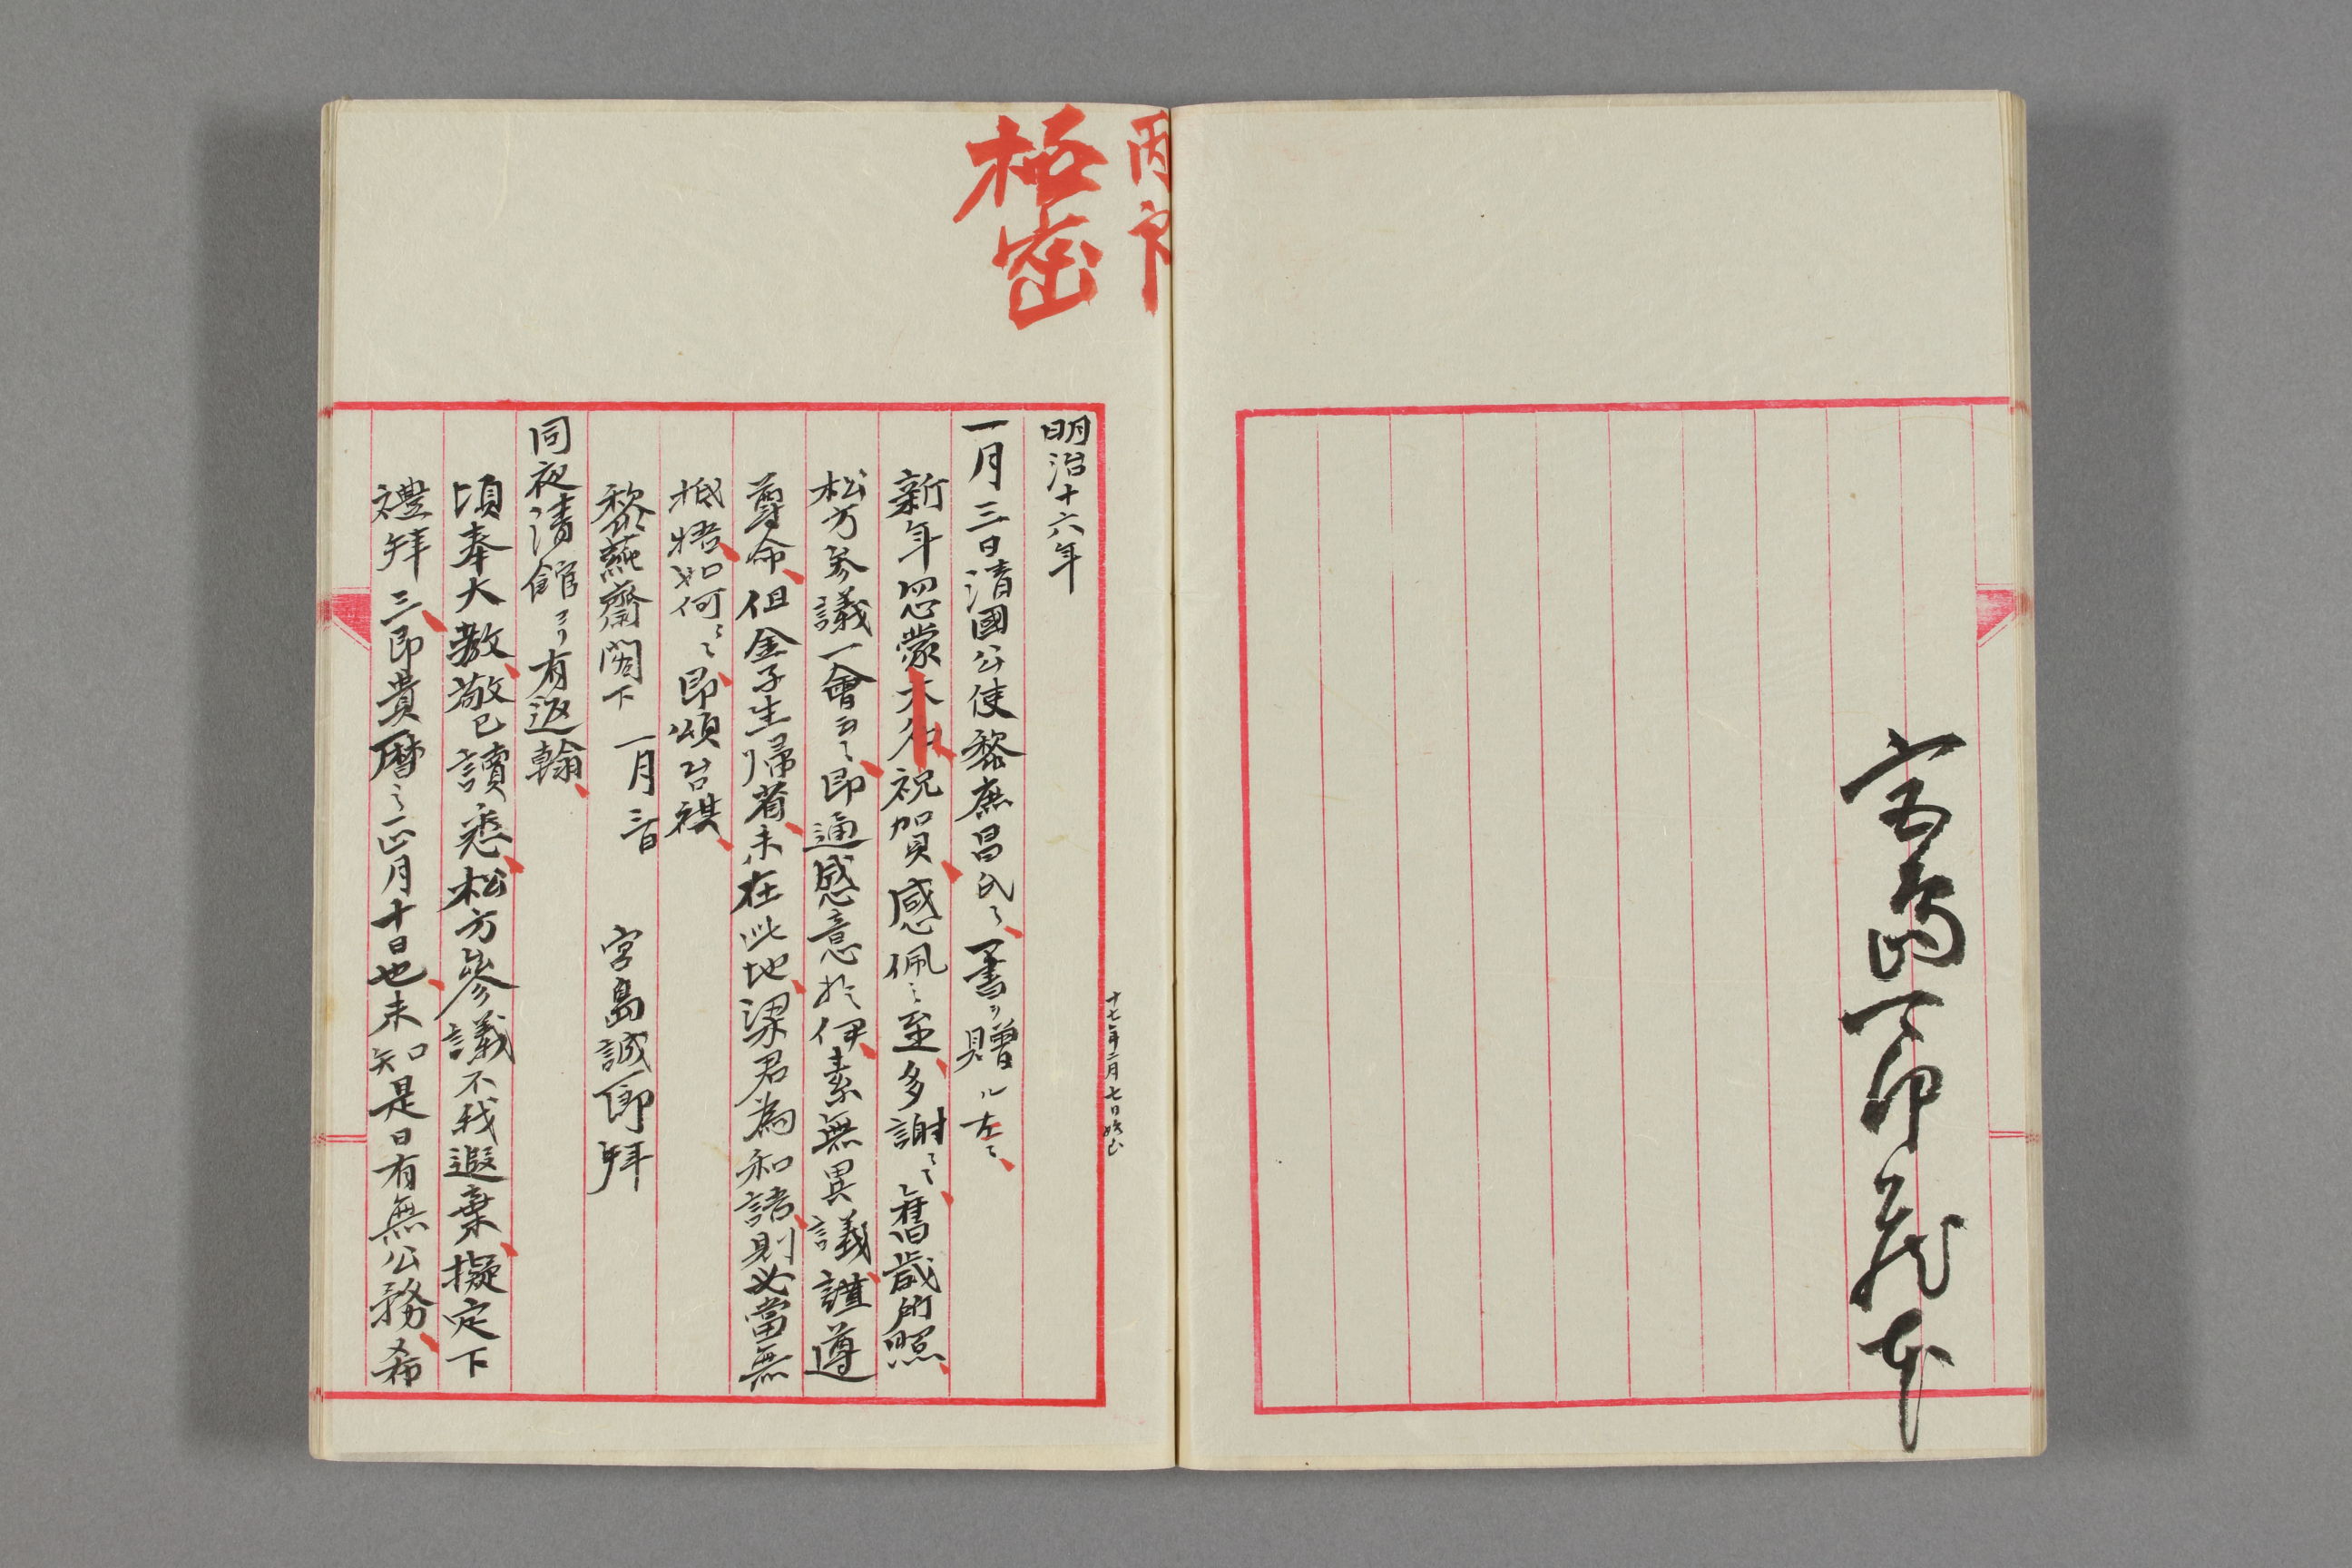 極密
明治十六年
一月三日清國公使黎庶昌氏ヘ一書ヲ贈ル左ニ
新年恩蒙大名祝賀感佩之至多謝々々舊歲所照
松方參議一會云々即通感意於伊素無異議謹遵
尊命但金子生帰省未在此地梁君為和諸則必當無
抵牾如何々々即頌台祺
黎蒓齋閣下 一月三日 宮島誠一郎拜
同夜清館ヨリ有返翰
頃奉大教敬已讀悉松方參議不我遐棄擬定下
禮拜三即貴曆之正月十日也未知是日有無公務希